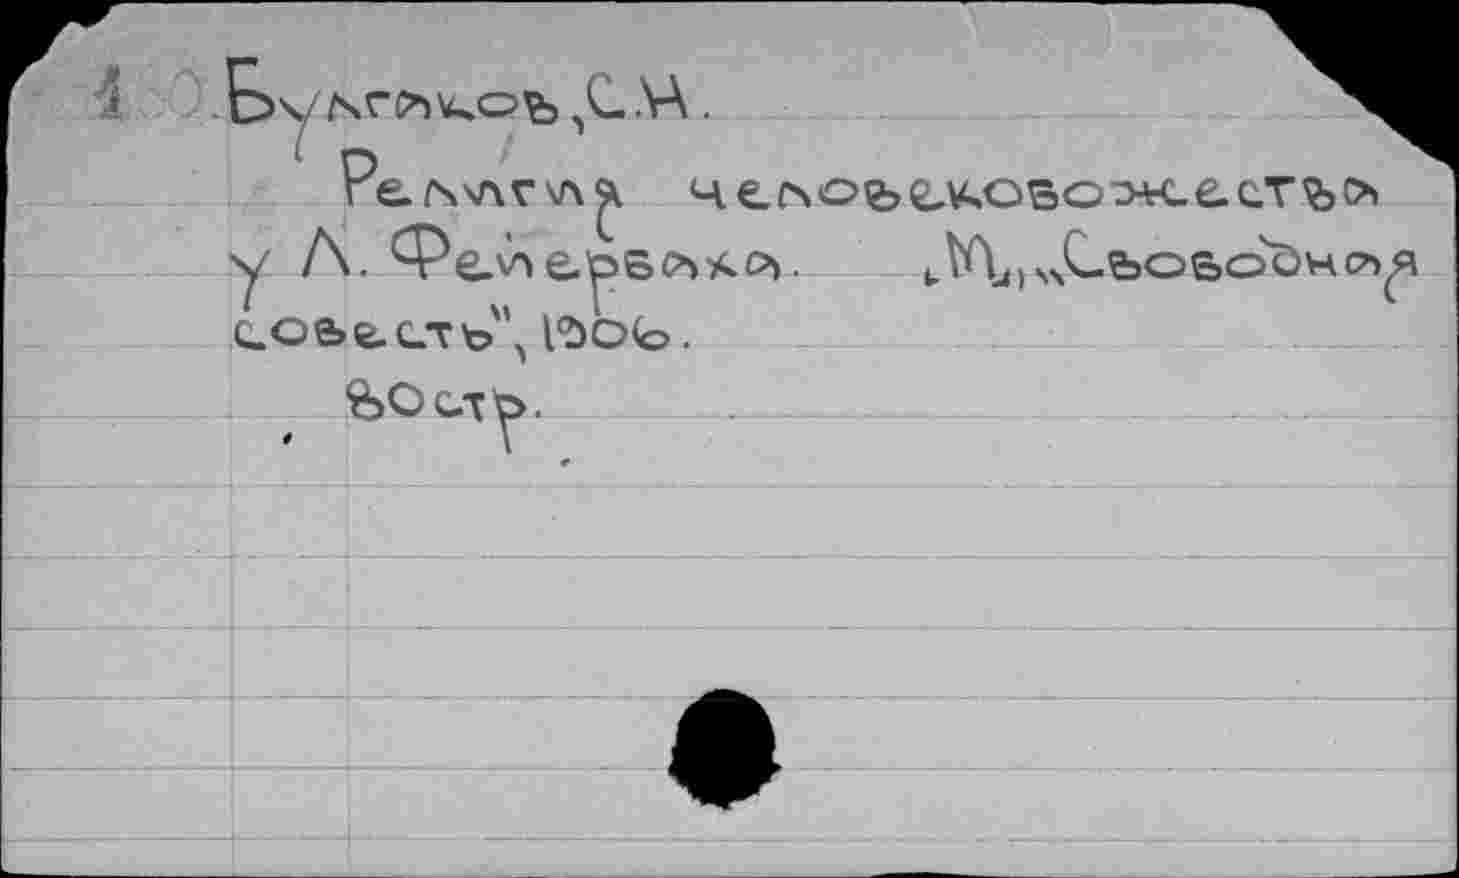 1 Булгаков, С.Н.
Религия человекобожества
у Л. Фейербаха. М., „Свободная
совесть", 1906.
Востр.